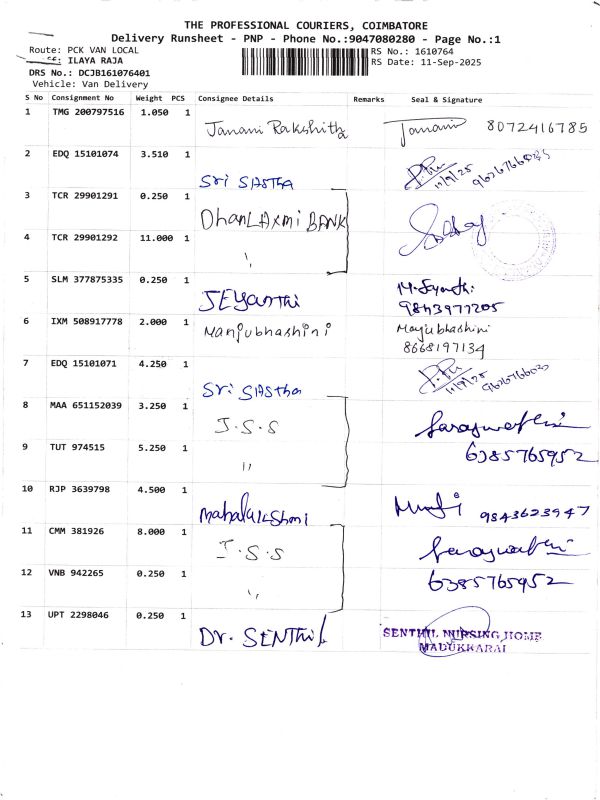 THE PROFESSIONAL COURIERS, COIMBATORE
Delivery Runsheet - PNP - Phone No.:9047080280 - Page No.:1
Route: PCK VAN LOCAL
RS No.: 1610764
ce: ILAYA RAJA
RS Date: 11-Sep-2025
DRS No.: DCJB161076401
Vehicle: Van Delivery
S No Consignment No Weight PCS Consignee Details Remarks Seal & Signature
1 TMG 200797516 1.050 1 Janani Rakshitha Janani 8072416785
2 EDQ 15101074 3.510 1 Sri SASTHA 11/9/25
3 TCR 29901291 0.250 1 DhanLAxmi BANK
4 TCR 29901292 11.000 1 ''
5 SLM 377875335 0.250 1 JEYanthi M.Jeyanthi
9843977205
6 IXM 508917778 2.000 1 Manjubhashini Manjubhashini
8668197134
7 EDQ 15101071 4.250 1 Sri SASTha 11/9/25
8 MAA 651152039 3.250 1 J.S.S Saraswathi
9 TUT 974515 5.250 1 '' 6385765952
10 RJP 3639798 4.500 1 mahalakshmi 9843623947
11 CMM 381926 8.000 1 J.S.S Saraswathi
12 VNB 942265 0.250 1 '' 6385765952
13 UPT 2298046 0.250 1 Dr. SENThil SENTHIL NURSING HOME
MADUKKARAI